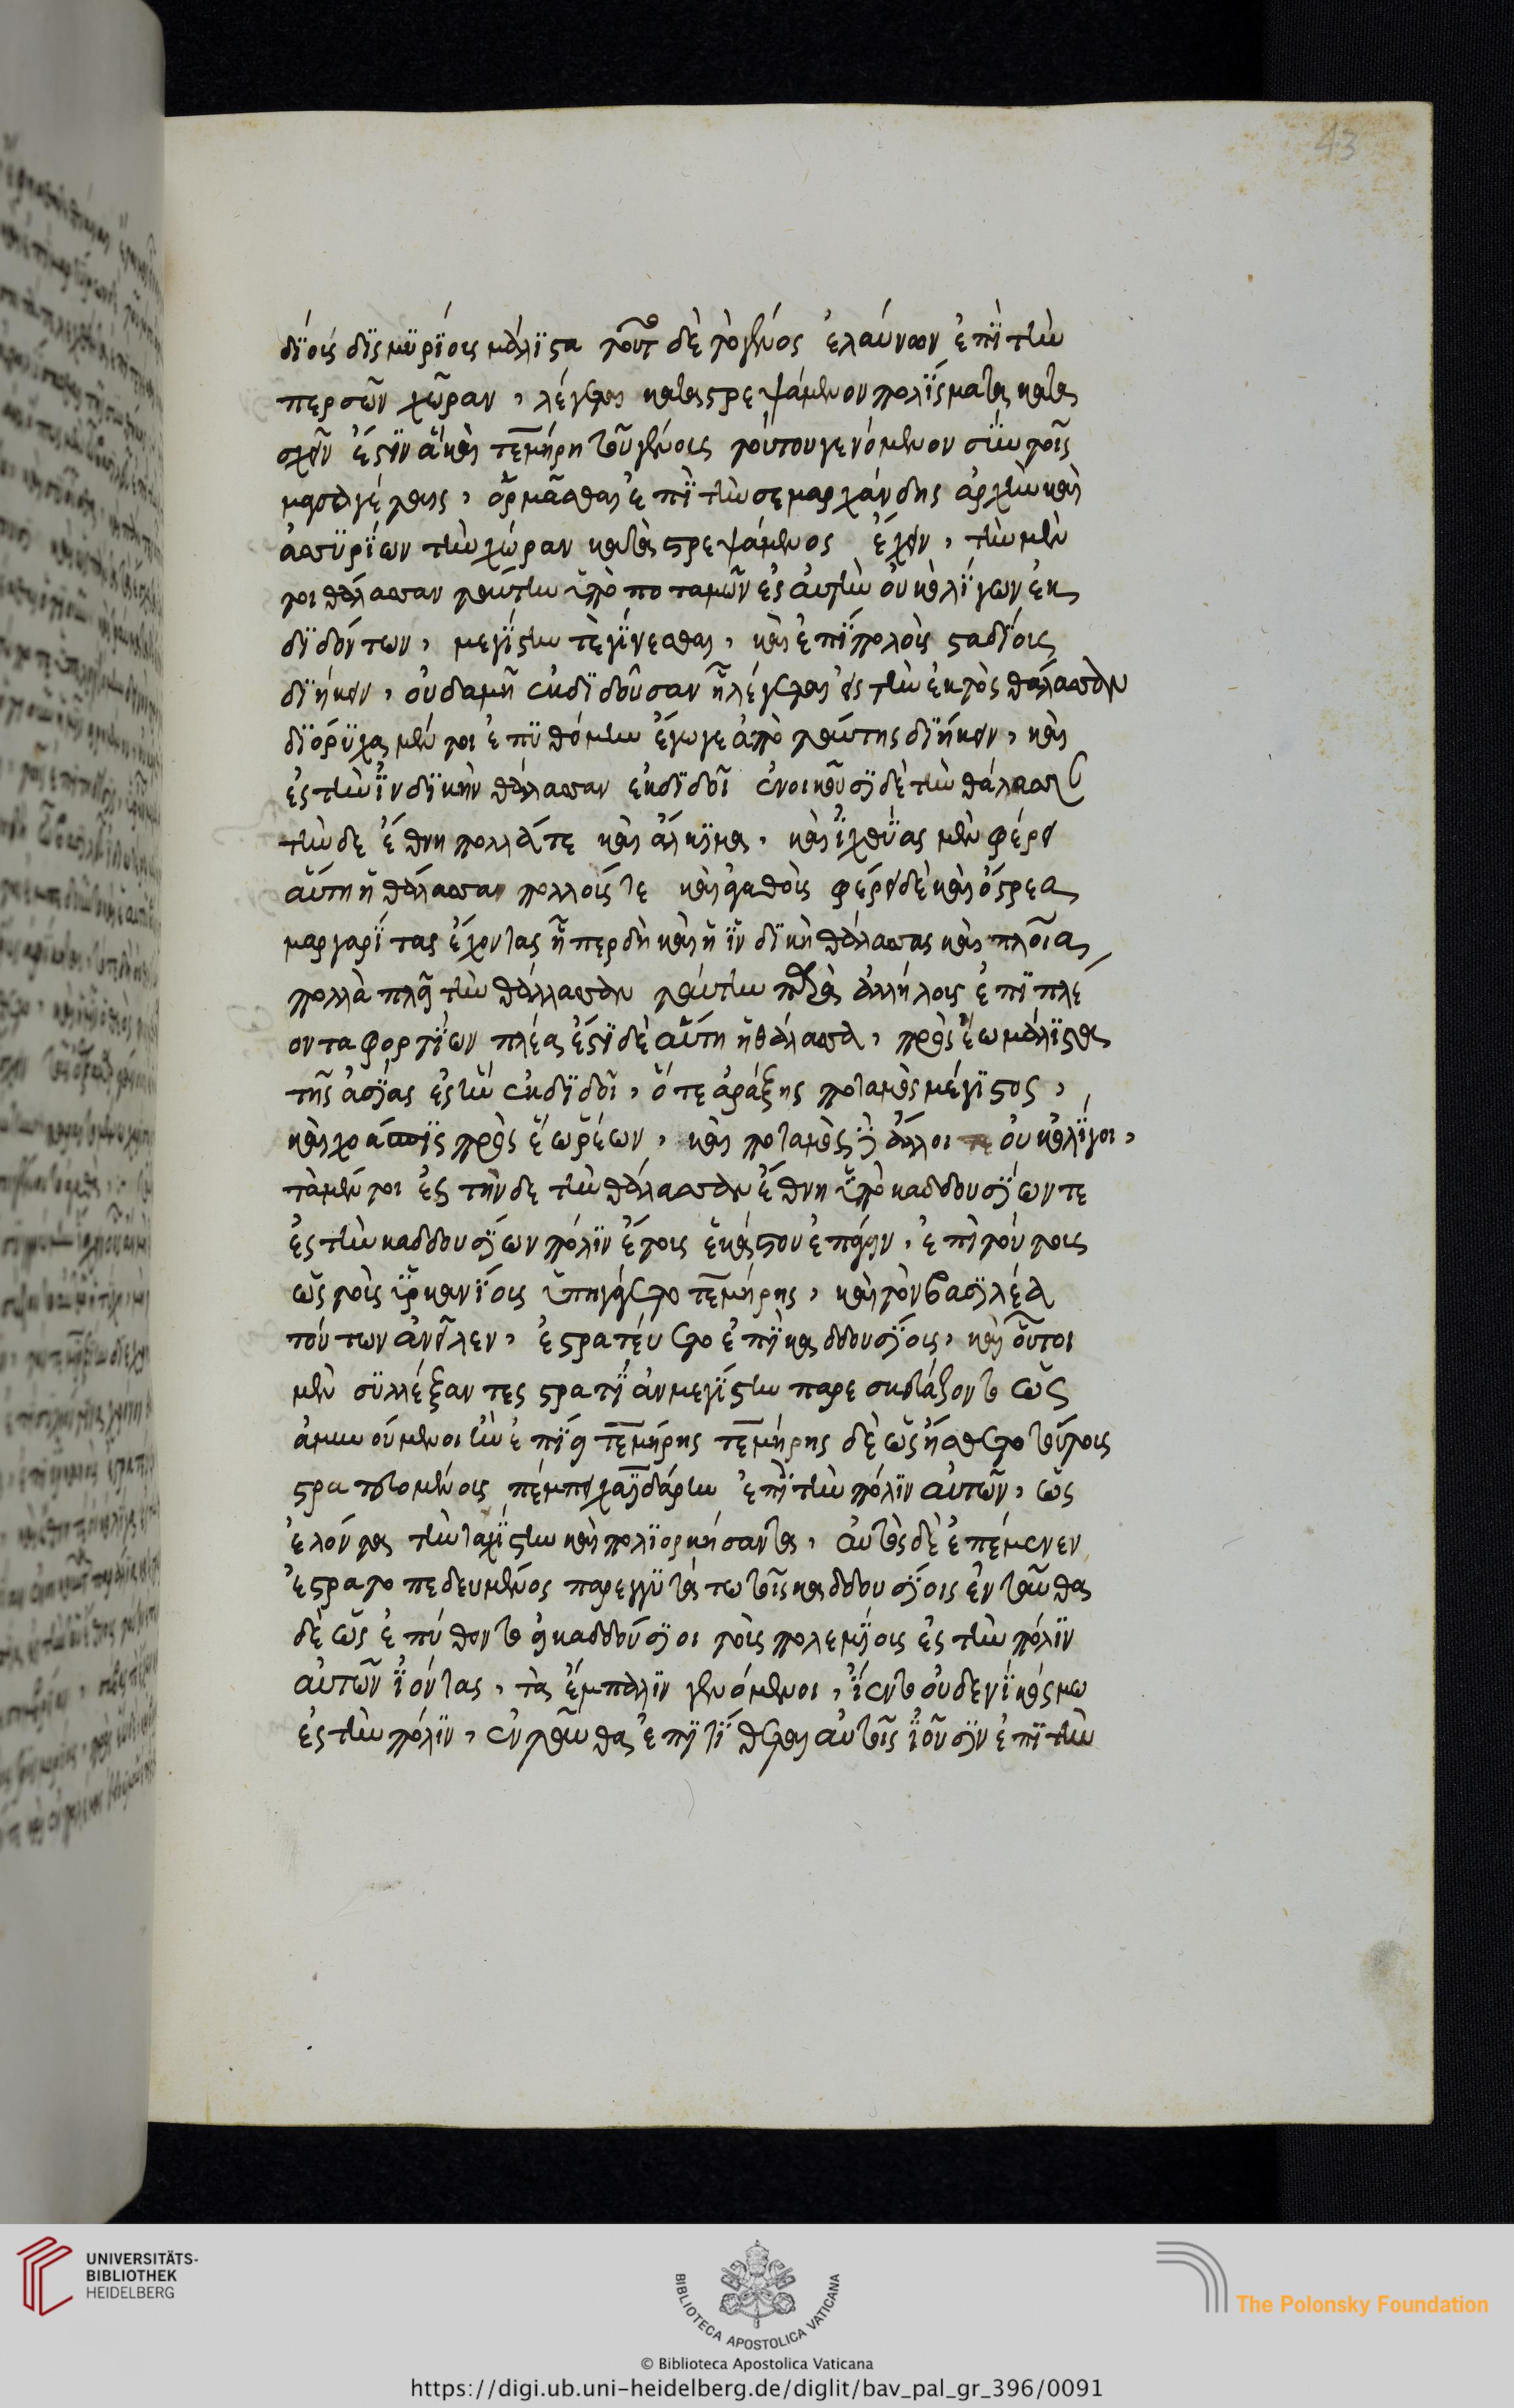 43
δίοις δισμυρίοις μάλιστα τοῦτ δὲ τὸ γένος ἐλαύνων ἐπὶ τὴν
περσῶν χῶραν, λέγεται καταστρεψάμενον πολίσματα κατα
σχεῖν ἔστιν ἃ καὶ τεμήρη τοῦ γένους τούτου γενόμενον σὺν τοῖς
μασαγέταις, ὁρμᾶσθαι ἐπὶ τὴν σεμαρχάνδης ἀρχὴν καὶ
ἀσσυρίων τὴν χώραν καταστρεψάμενος ἔχειν, τὴν μέν
τοι θάλασσαν ταύτην ὑπὸ ποταμῶν ἐς αὐτὴν οὐκ ὀλίγων ἐκ
διδόντων, μεγίστην τὲ γίνεσθαι, καὶ ἐπὶ πολοὺς σταδίους
διήκειν, οὐδαμῆ ἐκδιδοῦσαν ἧ λέγεται ἐς τὴν ἐκτὸς θάλασσαν
διόρυχα μέν τοι ἐπυθόμην ἔγωγε ἀπὸ ταύτης διήκειν, καὶ
ἐς τὴν ἰνδικὴν θάλασσαν ἐκδιδοῖ ἐνοικοῦσι δὲ τὴν θάλασσαν
τήνδε ἔθνη πολλά τε καὶ ἄλκιμα, καὶ ἰχθύας μὲν φέρει
αὕτη ἡ θάλασσα πολλούς τε καὶ ἀγαθοὺς φέρει δὲ καὶ ὄστρεα
μαργαρίτας ἔχοντας ᾗπερ δὴ καὶ ἡ ἰνδικὴ θάλασσας καὶ πλοῖα
πολλὰ πλεῖ τὴν θάλλασσαν ταύτην παρὰ ἀλλήλοις ἐπιπλέ
οντα φορτίων πλέα ἔστι δὲ αὕτη ἡ θάλασσα, πρὸς ἕω μάλιστα
τῆς ἀσίας ἐς ἣν ἐκδιδοῖ, ὅ τε ἀράξης ποταμὸς μέγιστος,
καὶ χοάσπις πρὸς ἕω ῥέων, καὶ ποταμοὶ ἄλλοι οὐκ ὀλίγοι,
τὰ μέν τοι ἐς τήνδε τὴν θάλασσαν ἔθνη ὑπὸ καδδουσίων τε
ἐς τὴν καδδουσίων πόλιν ἔτους ἑκάστου ἐπάγειν, ἐπὶ τούτοις
ὡς τοὺς ὑρκανίους ὑπηγάγετο τεμήρης, καὶ τὸν βασιλέα
τούτων ἀνεῖλεν, ἐστρατεύετο ἐπὶ καδδουσίους, καὶ οὗτοι
μὲν συλλέξαντες στρατιὰν μεγίστην παρεσκευάζοντο ὡς
ἀμυνούμενοι ἢν ἐπίῃ τεμήρης τεμήρης δὲ ὡς ᾔσθετο τούτοις
στρατευομένοις πέμπει χαϊδάρην ἐπὶ τὴν πόλιν αὐτῶν, ὡς
ἑλόντα τὴν ταχίστην καὶ πολιορκήσαντα, αὐτὸς δὲ ἐπέμενεν
ἐστρατοπεδευμένος παρεγγυάτω τοῖς καδδουσίοις ἐνταῦθα
δὲ ὡς ἐπύθοντο οἱ καδδούσιοι τοὺς πολεμίους ἐς τὴν πόλιν
αὐτῶν ἰόντας, τὰ ἔμπαλιν γενόμενοι, ἵεντο οὐδενὶ κόσμω
ἐς τὴν πόλιν, ἐνταῦθα ἐπιτίθεται αὐτοῖς ἰοῦσιν ἐπὶ τὴν
UNIVERSITÄTS-
BIBLIOTHEK
HEIDELBERG
BIBLIOTECA APOSTOLICA VATICANA
The Polonsky Foundation
© Biblioteca Apostolica Vaticana
https://digi.ub.uni-heidelberg.de/diglit/bav_pal_gr_396/0091